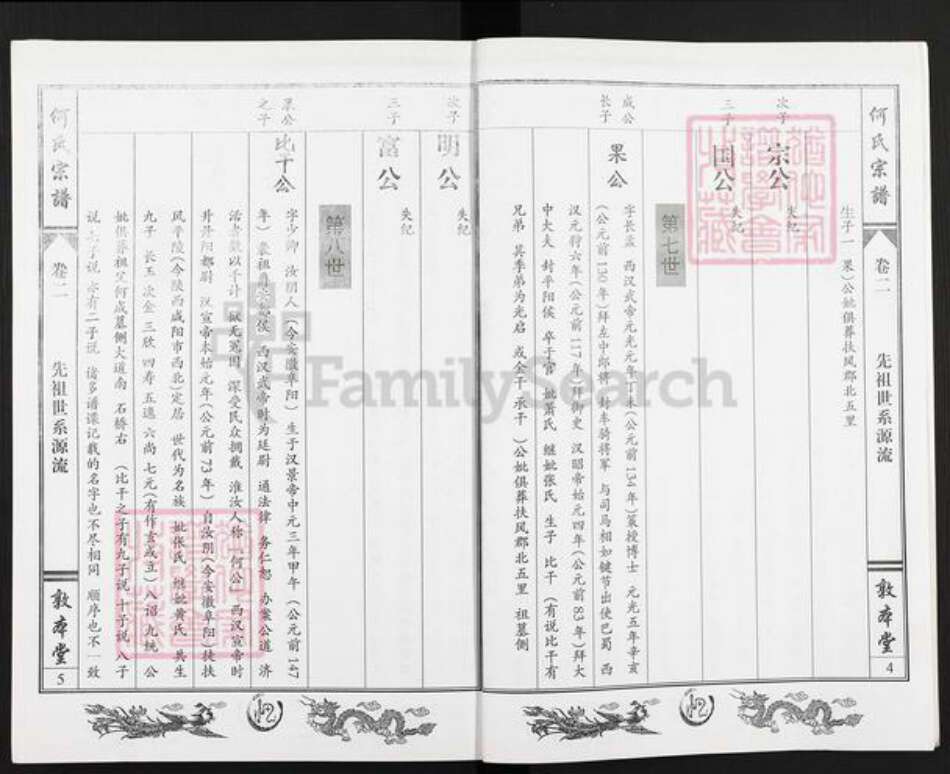 何氏宗譜
卷二
先祖世系源流
敦本堂
4
生子一 果)公妣俱葬扶风郡北五里
次子
宗公
失纪
三子
国公
失纪
第七世
成公
长子
果公
字长孟 西汉武帝元光元年丁未(公元前134年)策授博士 元光五年辛亥
(公元前130年)拜左中郎将 封车骑将军 与司马相如键节出使巴蜀 西
汉元狩六年(公元前117年)拜御史 汉昭帝始元四年(公元前83年)拜大
中大夫 封平阳侯 卒于官 妣萧氏 继妣张氏 生子 比干 (有说比干有
兄弟 其季弟为光启 或金干 承干 )公妣俱葬扶风郡北五里 祖墓侧
次子
明公
失纪
三子
富公
失纪
第八世
果公
之子
比干公
字少卿 汝阴人(今安徽阜阳) 生于汉景帝中元三年甲午(公元前147
年) 袭祖 侯 西汉武帝时为廷尉 通法律 务仁恕 办案公道 济
活者数以千计 狱无冤囚 深受民众拥戴 淮汝人称「何公」 西汉宣帝时
升丹阳都尉 汉宣帝本始元年(公元前73年) 自汝阴(今安徽阜阳)徙扶
风平陵(今陕西咸阳市西北)定居 世代为名族 妣张氏 继妣黄氏 共生
九子 长玉 次金 三欣 四寿 五逃 六尚 七元(有作玄或立) 八诏 九统 公
妣俱葬祖父何成墓侧大道南 石桥右 (比干之子有九子说 十子说 八子
说 子说 亦有二子说 诸多谱谍记载的名字也不尽相同 顺序也不一致
何氏宗譜
卷二
先祖世系源流
敦本堂
5
FamilySearch